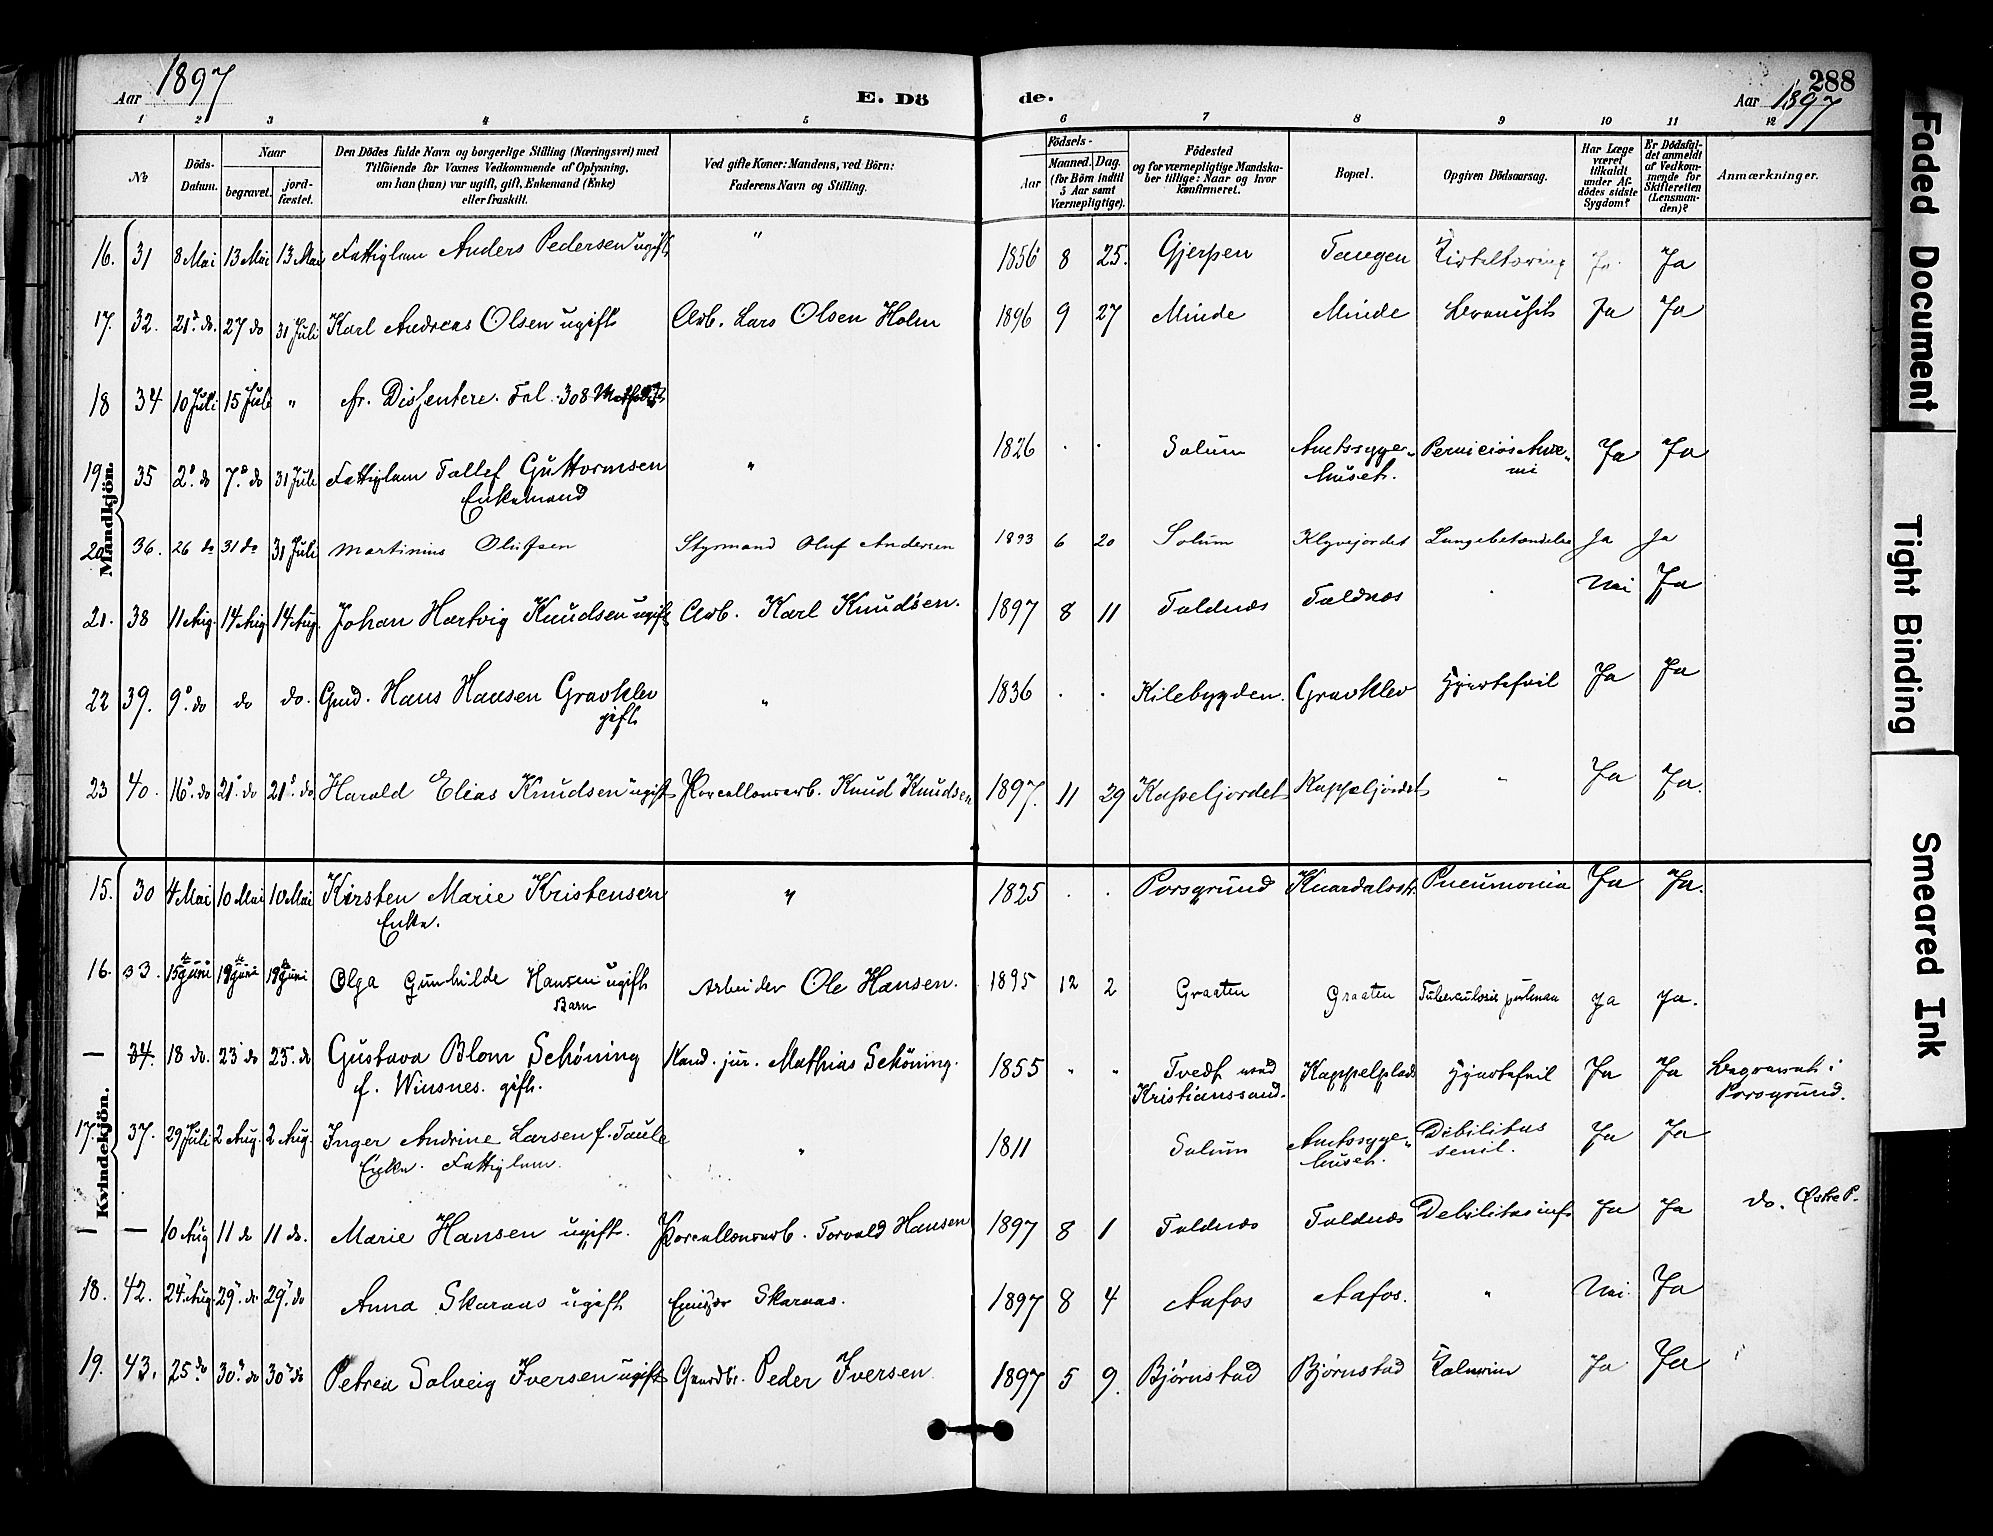 Aar 1897
E. Dö de.
Aar 1897
288
1 2 3 4 5 6 7 8 9 10 11 12
№
Döds-Datum.
Naar
begravet.
jord-fæstet.
Den Dödes fulde Navn og borgerlige Stilling (Næringsvei) med
Tilföiende for Voxnes Vedkommende af Oplysning,
om han (hun) var ugift, gift, Enkemand (Enke)
eller fraskilt.
Ved gifte Koner: Mandens, ved Börn:
Faderens Navn og Stilling.
Födsels-
Aar
Maaned. Dag.
(for Börn indtil
5 Aar samt
Værnepligtige).
Födested
og for værnepligtige Mandska-
ber tillige: Naar og hvor
konfirmeret.
Bopæl.
Opgiven Dödsaarsag.
Har Læge
været
tilkaldt
under Af-
dödes sidste
Sygdom?
Er Dödsfal-
det anmeldt
af Vedkom-
mende for
Skifteretten
(Lensman-
den)?
Anmærkninger.
Mandkjön.
16. 31 8 Mai 13 Mai 13 Mai Fattiglem Anders Pedersen ugift " 1856 8 25. Gjerpen Tangen Ja Ja
17. 32. 21. do. 27 do 31 Juli Karl Andreas Olsen ugift Arb. Lars Olsen Holm 1896 9 27 Minde Minde Bronchit Ja Ja
18 34 10 Juli 15 Juli " fr. Dissentere. Fol. 308
19. 35 2. do 7. do 31 Juli Fattiglem Tollef Guttormsen " 1826 . . Solum Amtssyge- Perniciös Anæ- Ja Ja
Enkemand huset. mi
20. 36. 26 do 31 do 31 Juli Martinius Olufsen Styrmand Oluf Andersen 1893 6 20 Solum Klyvejordet Lungebetændelse Ja Ja
21. 38 11 Aug. 14 Aug 14 Aug. Johan Hartvig Knudsen ugift Arb. Karl Knudsen. 1897 8 11 Foldnæs Foldnæs " Nei Ja
22 39. 9. do do do. Gmd. Hans Hansen Gravklev " 1836 . . Kilebygden. Gravklev Hjertefeil Ja Ja
gift
23 40. 16. do 21. do 21. do Harald Elias Knudsen ugift Porcellænsarb. Knud Knudsen 1897. 11 29 Kappeljordet Kappeljordet " Ja Ja.
Kvindekjön.
15. 30 4 Mai 10 Mai 10 Mai Kirsten Marie Kristensen " 1825 . . Porsgrund Knardalsstr. Pneumonia Ja Ja.
Enke.
16. 33. 15 Juni 19 Juni 19 Juni Olga Gunhilde Hansen ugift Arbeider Ole Hansen. 1895 12 2 Graaten Graaten Tuberculosis pulmon Ja Ja.
Barn
— 34. 18 do. 23 do 23. do Gustava Blom Schöning Kand. jur. Mathias Schöning. 1855 " " Tvedt ved Kappelplads Hjertefeil Ja Ja Begravet i
f. Winsnes. gift. Kristianssand. Porsgrund.
17. 37. 29 Juli 2 Aug. 2 Aug. Inger Andrine Larsen f. Taule " 1811 Solum Amtssyge- Debilitas Ja Ja
Enke. Fattiglem. huset. senil.
— — 10 Aug 11 do 11 do. Marie Hansen ugift. Porcellænsarb. Torvald Hansen 1897 8 1 Foldnæs Foldnæs Debilitas inf. Ja Ja do. Østre P.
18. 42. 24. Aug. 29. do 29. do Anna Skaraas ugift Skaraas. 1897 8 4 Aafos Aafos. " Nei. Ja
19. 43. 25. do 30. do 30. do Petrea Solveig Iversen ugift Gaardbr. Peder Iversen 1897 5 9. Bjørnstad Bjørnstad Ja Ja
Faded Document
Tight Binding
Smeared Ink